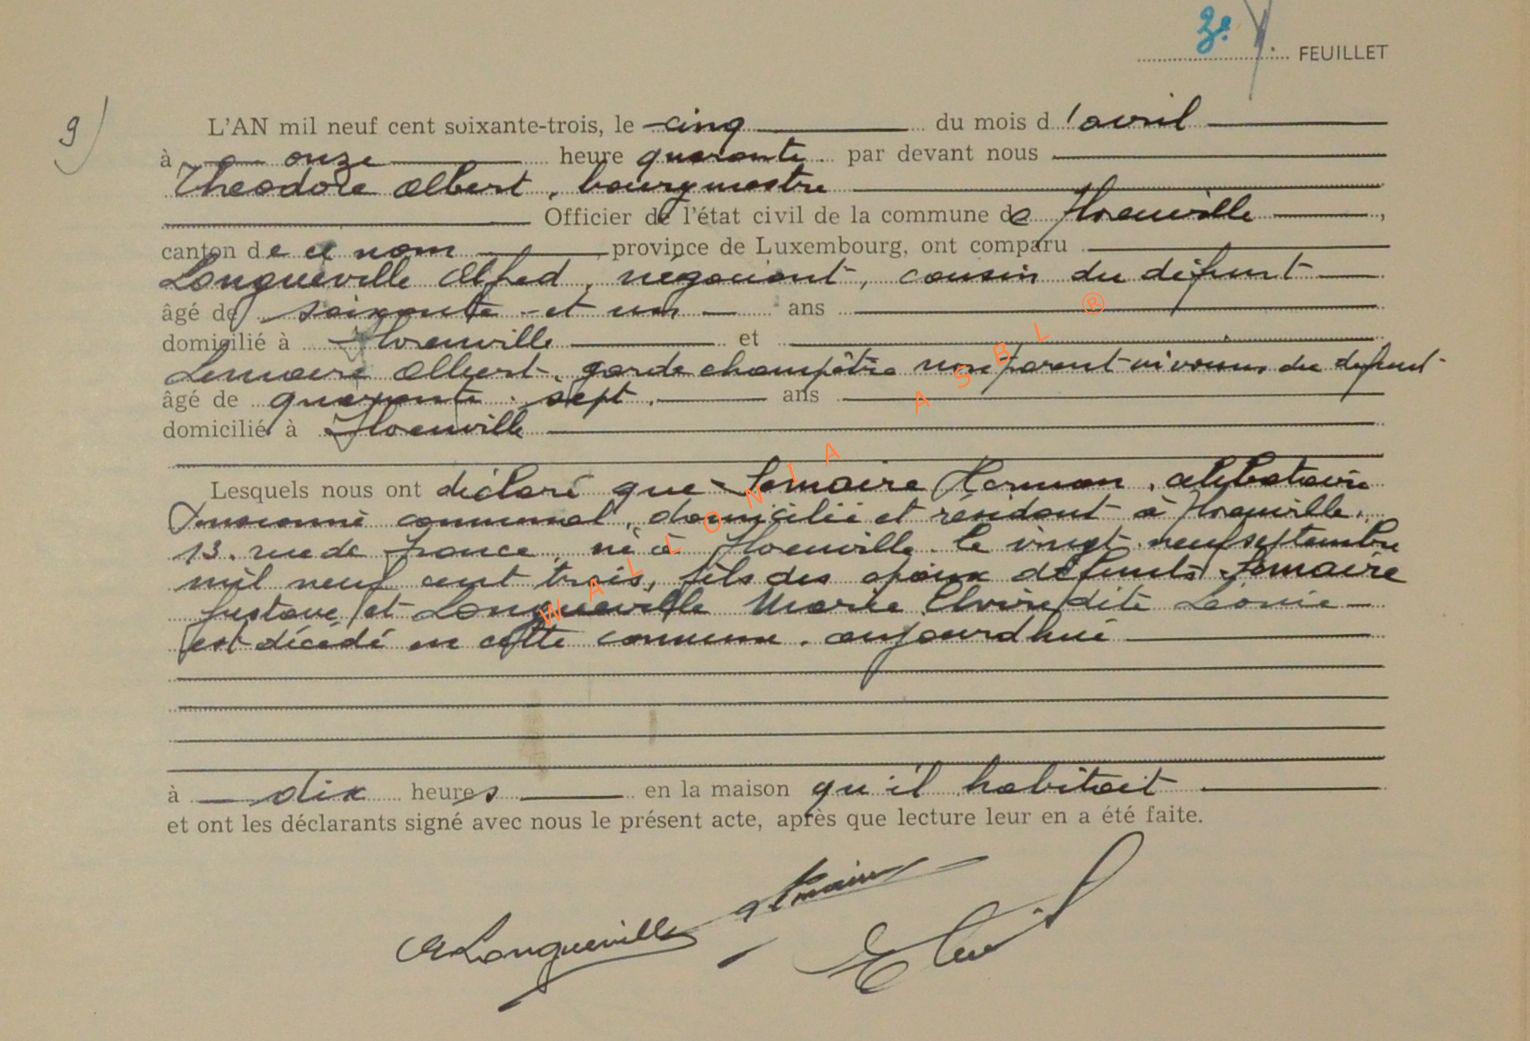 3e. FEUILLET
9)
L'AN mil neuf cent soixante-trois, le cinq du mois d'avril
à onze heure quarante par devant nous
Théodore Albert, bourgmestre
Officier de l'état civil de la commune de Flrenville,
canton de ce nom province de Luxembourg, ont comparu
Longueville Alfred, négociant, cousin du défunt
âgé de soixante et un ans
domicilié à Florenville et
Lemaire Albert, garde champêtre non parent ni voisin du défunt
âgé de quarante sept ans
domicilié à Florenville
Lesquels nous ont déclaré que Lemaire Herman, célibataire
Pensionné communal, domicilié et résidant à Florenville,
13. rue de France, né à Florenville le vingt neuf septembre
mil neuf cent trois, fils des époux défunts Lemaire
Gustave et Longueville Marie Elvire dite Léonie
est décédé en cette commune, aujourd'hui
à dix heures en la maison qu'il habitait
et ont les déclarants signé avec nous le présent acte, après que lecture leur en a été faite.
A Longueville Lemaire
WALLONIA ASBL ®